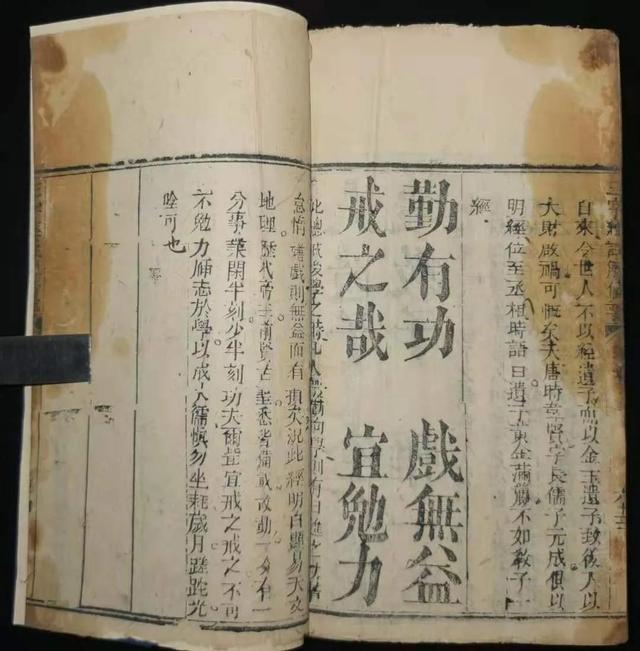 三字經註解備要
自來今世人不以經遺子而以金玉遺子致後人以
大財啟禍可慨矣大唐時韋賢字長儒子元成俱以
明經位至丞相時語曰遺子黃金滿籯不如教子一
經
勤有功 戲無益
戒之哉 宜勉力
此總戒後學之時凡人勤向學則有日進之功若
怠惰嬉戲則無益而有損矣況此經明白顯易天文
地理歷代帝王前賢古聖悉皆備載故勤一分有一
分事業閑半刻少半刻功夫爾豈宜戒之戒之不可
不勉力師志於學以成大儒慎勿坐耗歲月蹉跎光
陰可也